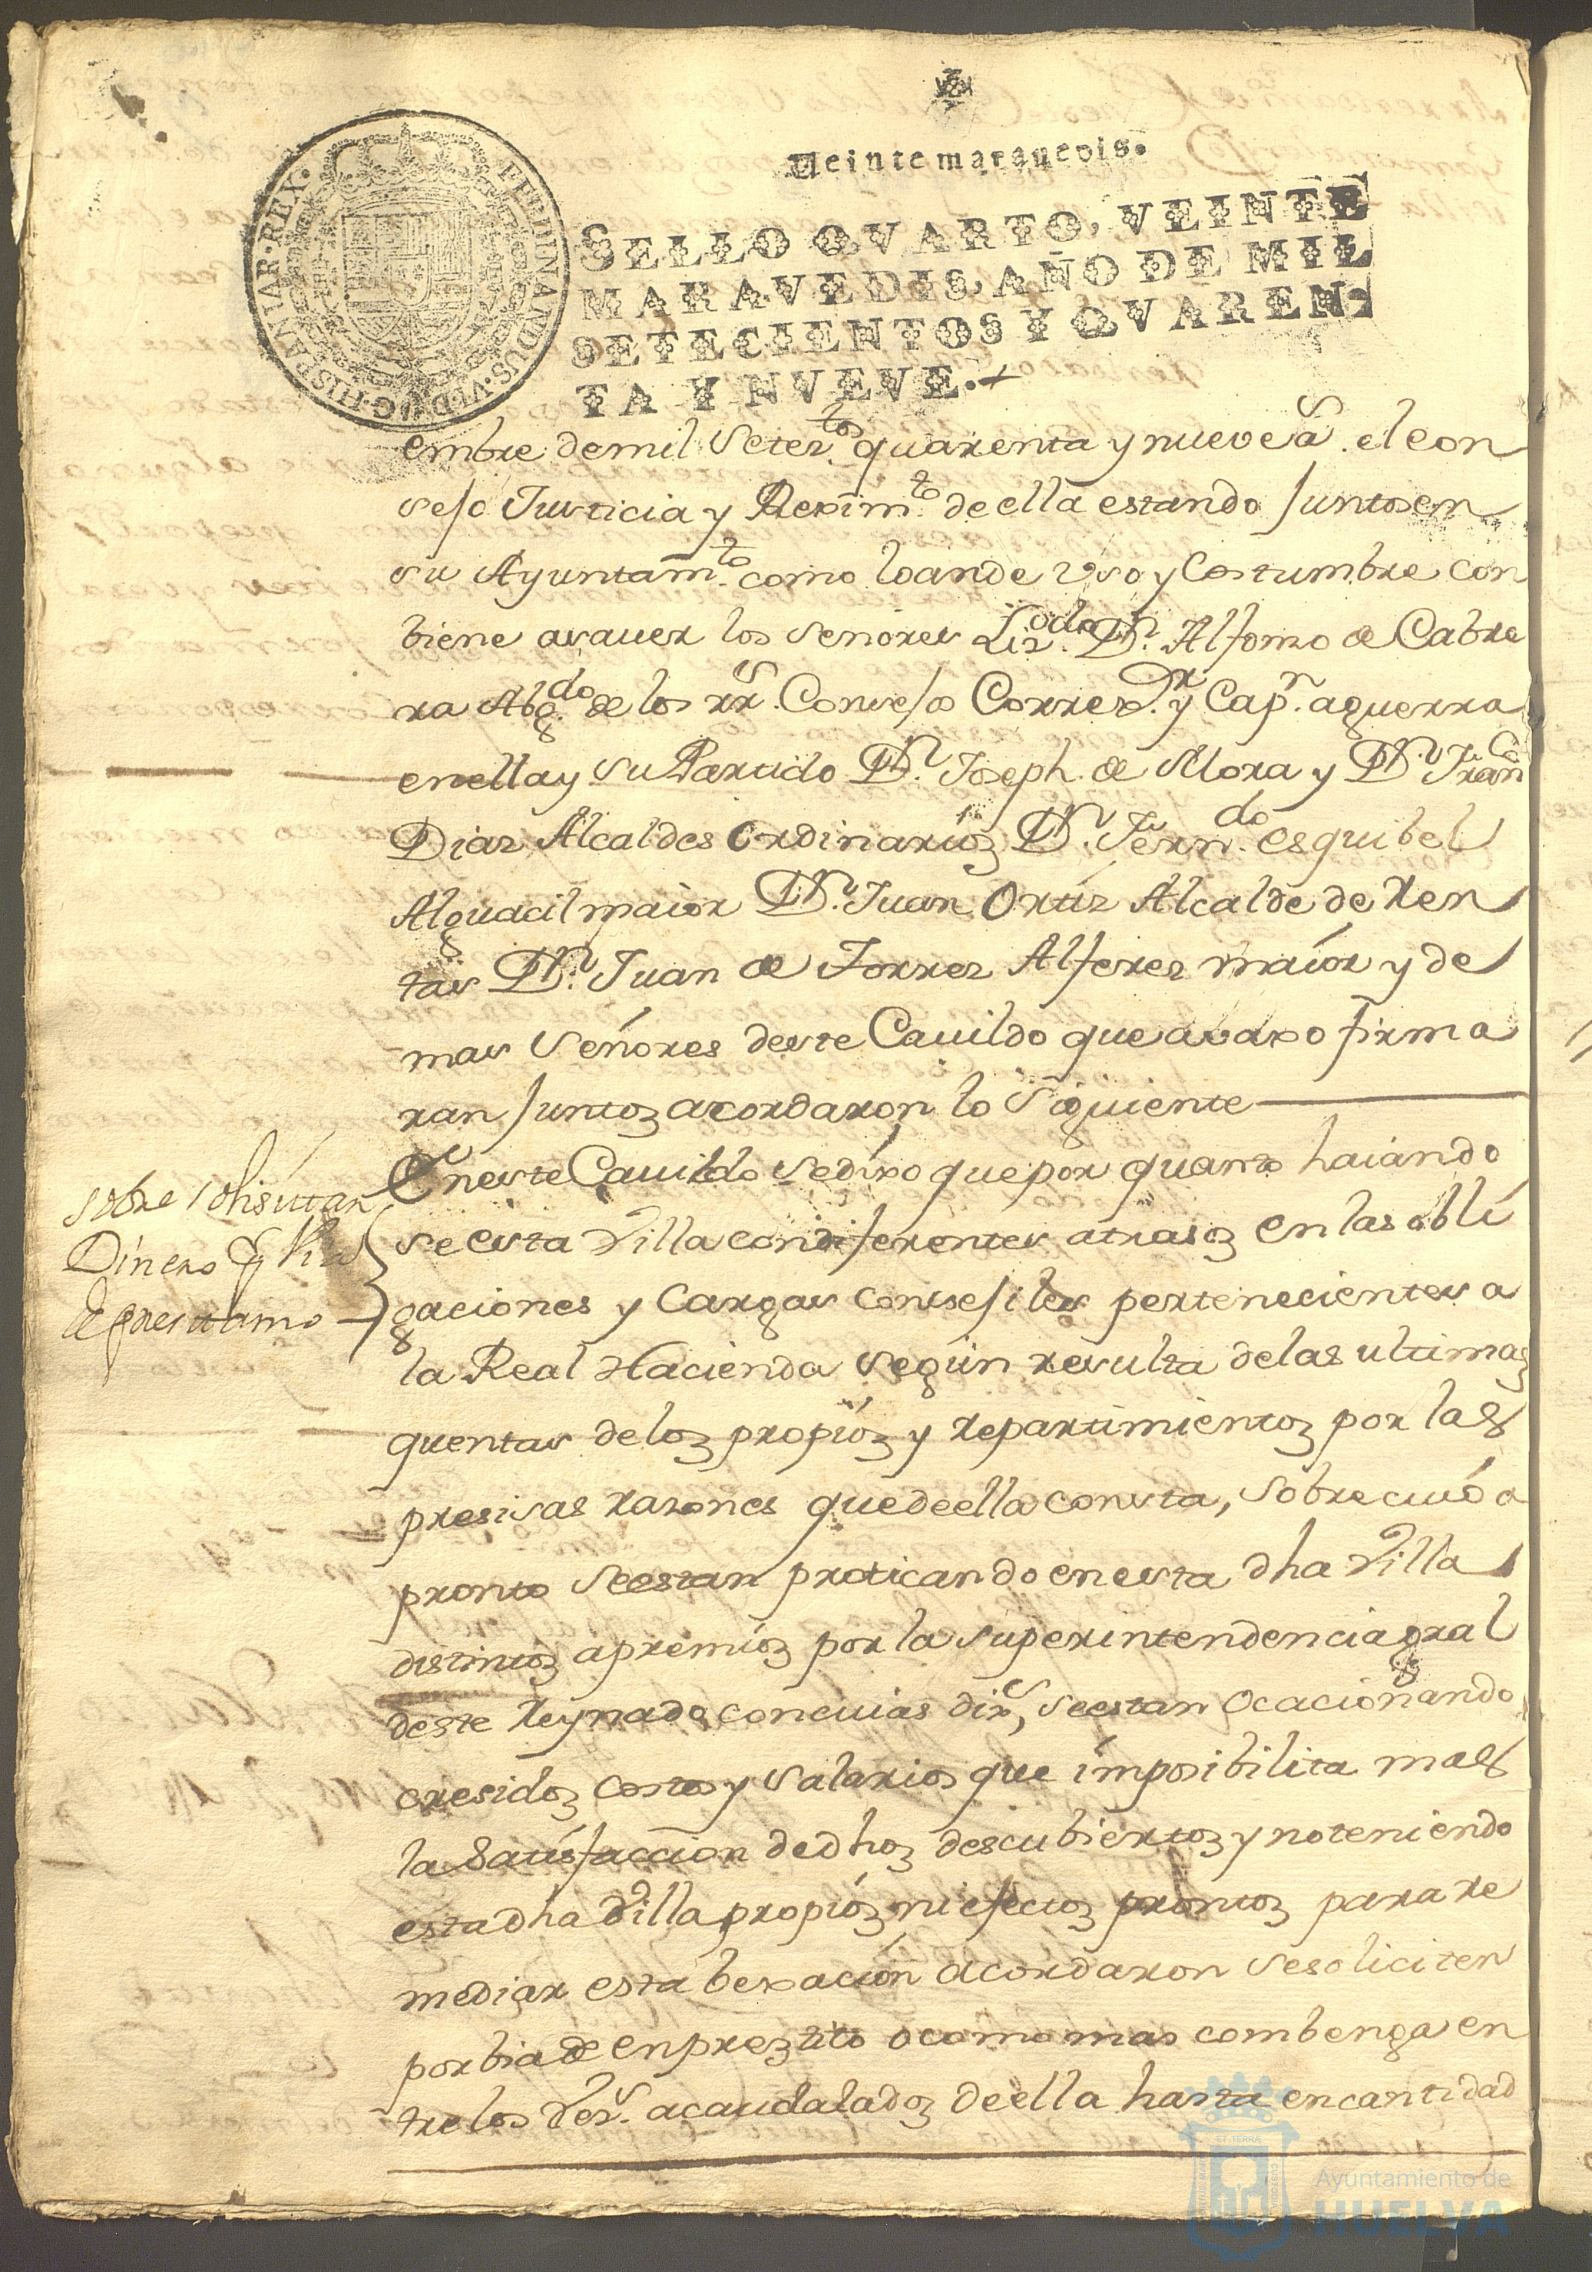 Veinte maravedis.
SELLO QVARTO, VEINTE
MARAVEDIS, AÑO DE MIL
SETECIENTOS Y QVAREN-
TA Y NVEVE.
FERDINANDUS·VI·D·G·HISPANIAR·REX·
embre demil Setez.tos quarenta y nueve as. el con
sejo Justicia y Rexim.to de ella estando Juntos en
su Ayuntam.to como lo an de Uso y Costumbre con
biene asauer los Senores Liz.do Dn. Alfonso de Cabre
ra Abg.do de los rrs. Consejos Correx.or y Capn. aguerra
en ella y su Partido Dn. Joseph de Mora y Dn. Franco
Dias Alcaldes Ordinarios Dn. Fern.do esquibel
Alguacil maior Dn. Juan Ortiz Alcalde de Ren
tas Dn. Juan de Torres Alferes maior y de
mas Señores deste Cauildo que avaxo firma
ran Juntos acordaron lo Siguiente
En este Cauildo se dixo que por quanto haiando
se esta Villa con diferentes atrasos en las obli
gaciones y Cargas Consejiles pertenecientes a
la Real Hacienda Según resulta de las ultimas
quentas de los propios y repartimientos por las
presisas razones que de ella consta, sobre cuió a
pronto se estan praticando en esta dha Villa
distintos apremios por la superintendencia gral
deste Reynado, con cuias dixs, se estan Ocacionando
cresidos costos y salarios que imposibilita mas
la Satisfaccion de dhos descubiertos y no teniendo
esta dha Villa propios ni efectos prontos para re
mediar esta bexación acordaron se soliciten
por bia de enprestito o como mas combenga en
tre los Vezs. acaudalados de ella hasta en cantidad
sobre solisitar
Dinero
de prestamo
Ayuntamiento de
HUELVA